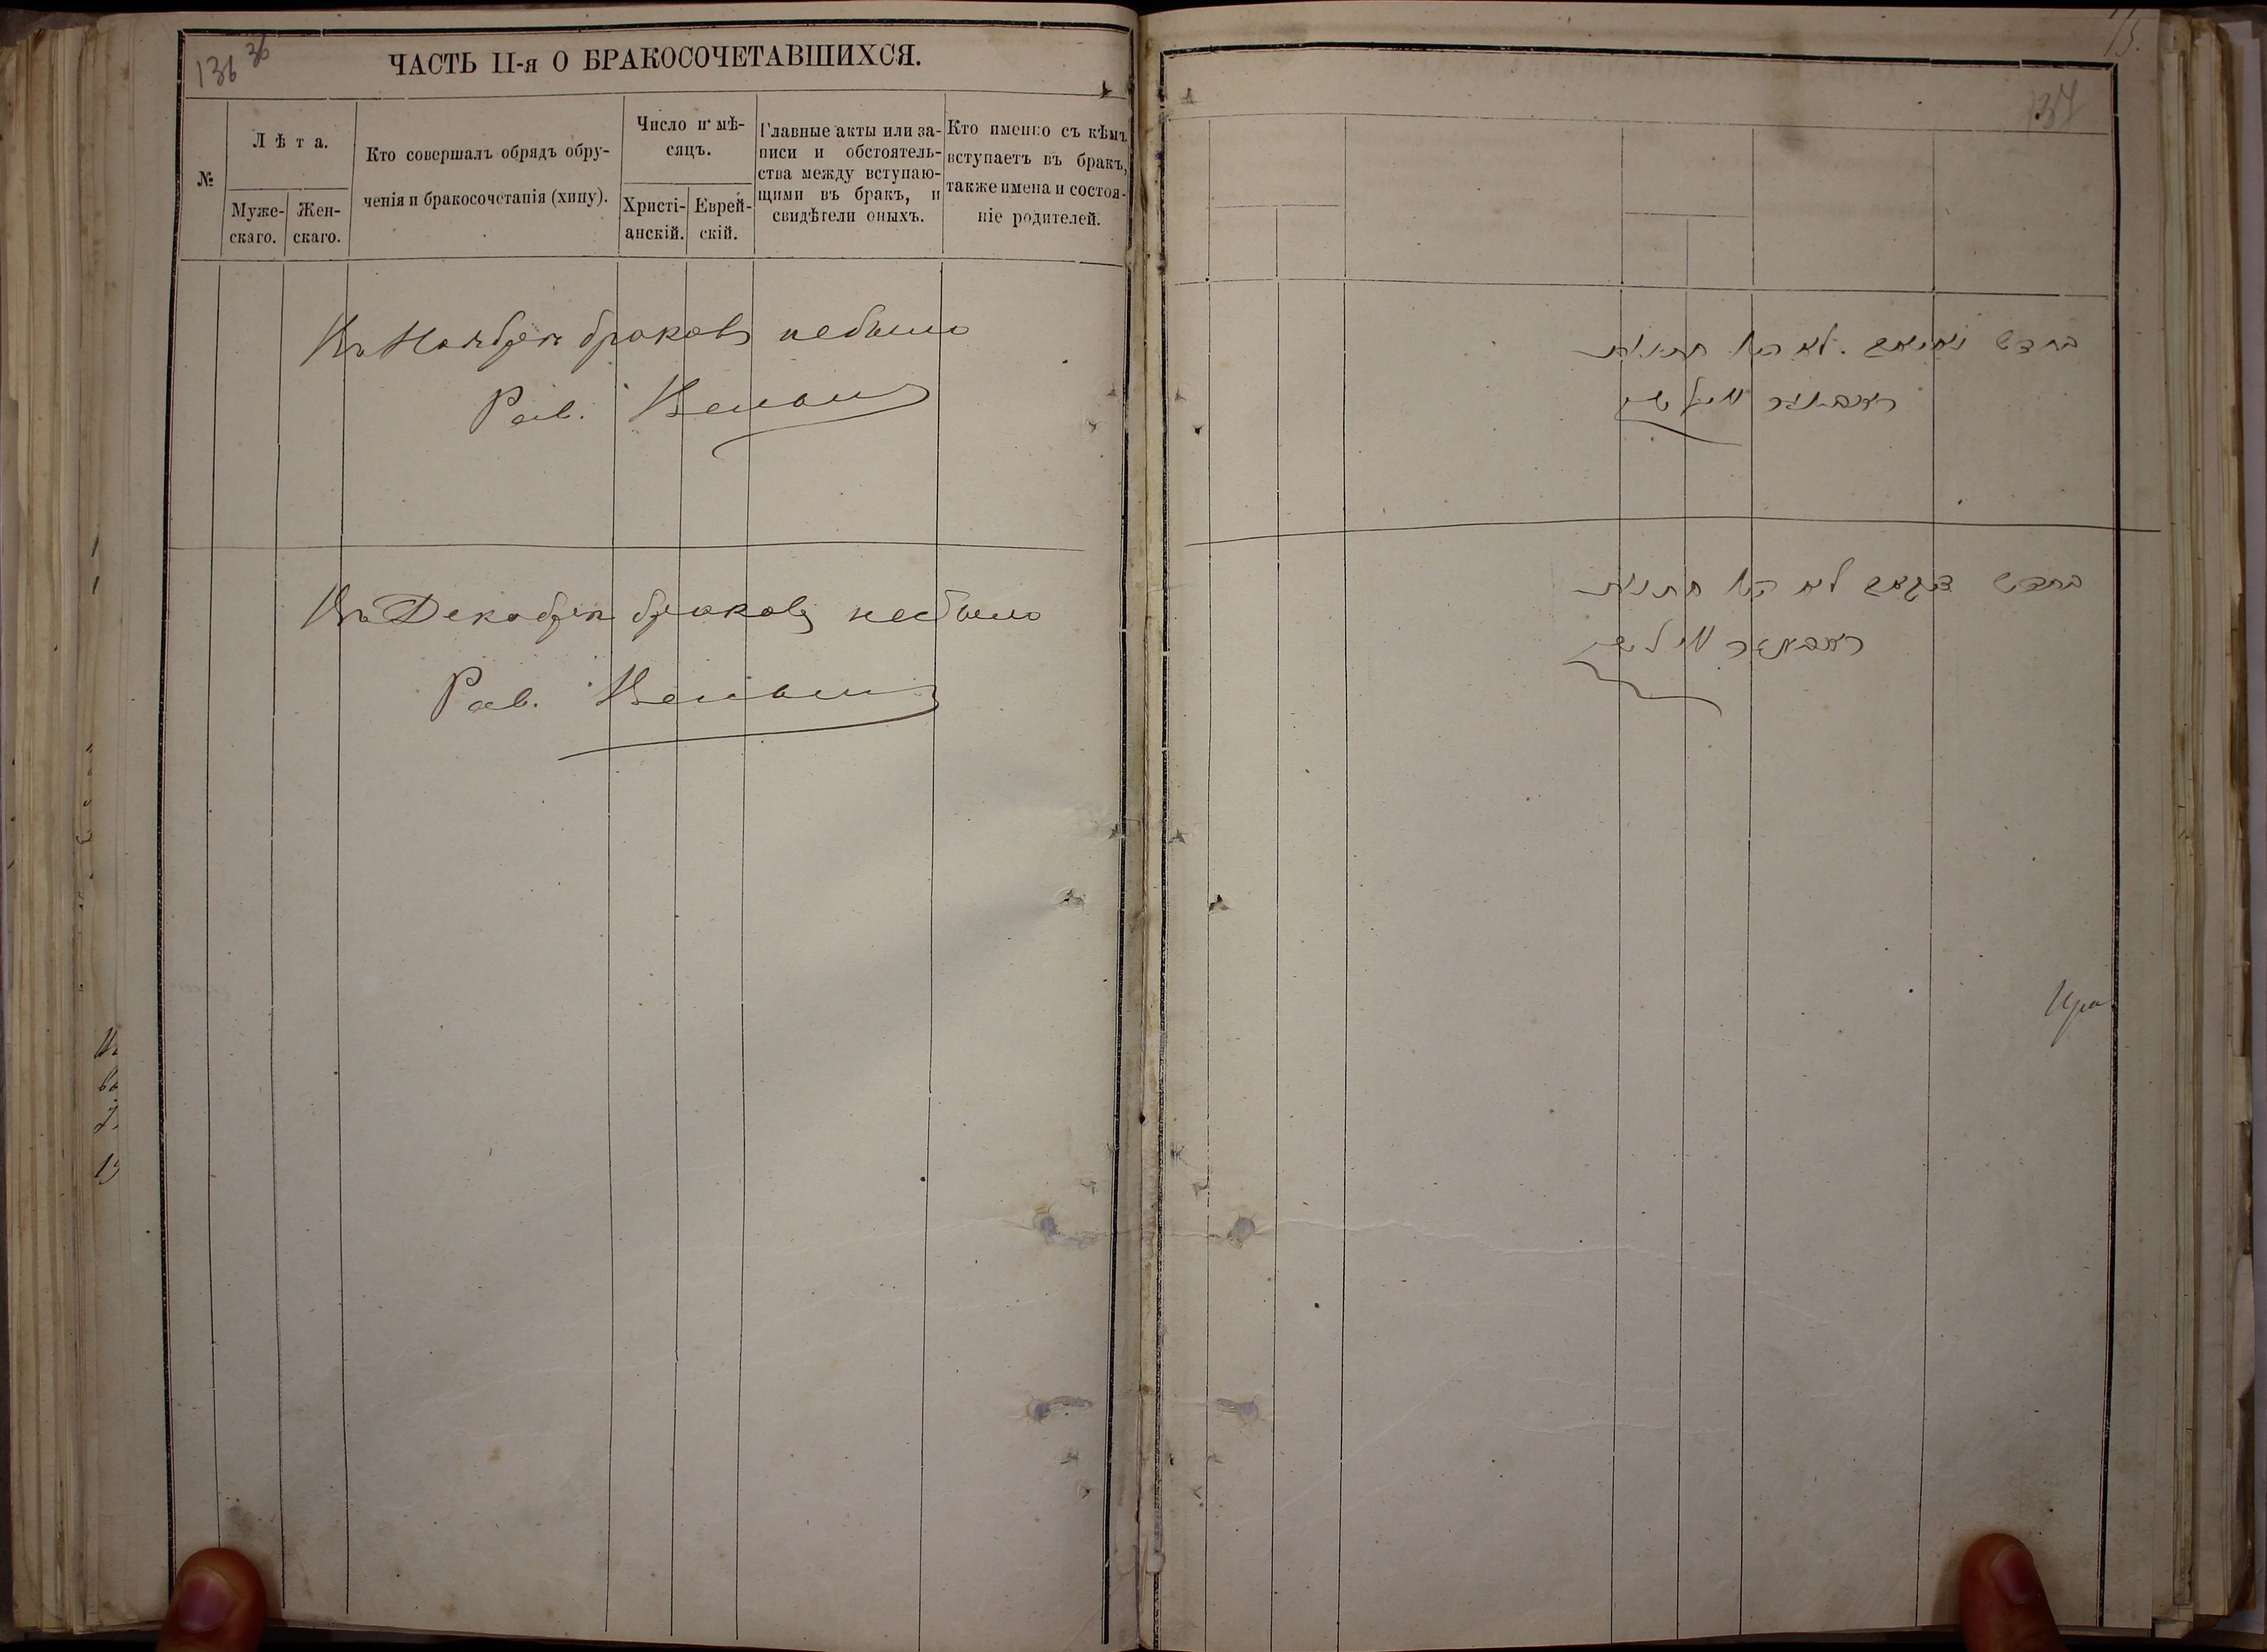 136 36
ЧАСТЬ II-я О БРАКОСОЧЕТАВШИХСЯ.
№
Лѣта.
Муже-
скаго.
Жен-
скаго.
Кто совершалъ обрядъ обру-
ченія и бракосочетанія (хипу).
Число и мѣ-
сяцъ.
Христі-
анскій.
Еврей-
скій.
Главные акты или за-
писи и обстоятель-
ства между вступаю-
щими въ бракъ, и
свидѣтели оныхъ.
Кто именно съ кѣмъ
вступаетъ въ бракъ,
также имена и состоя-
ніе родителей.
Въ Ноябрѣ браковъ небыло
Рав.
Въ Декабрѣ браковъ небыло
Рав.
137
בחדש לא היו חתונות
ראבינער
בחדש לא היו חתונות
ראבינער